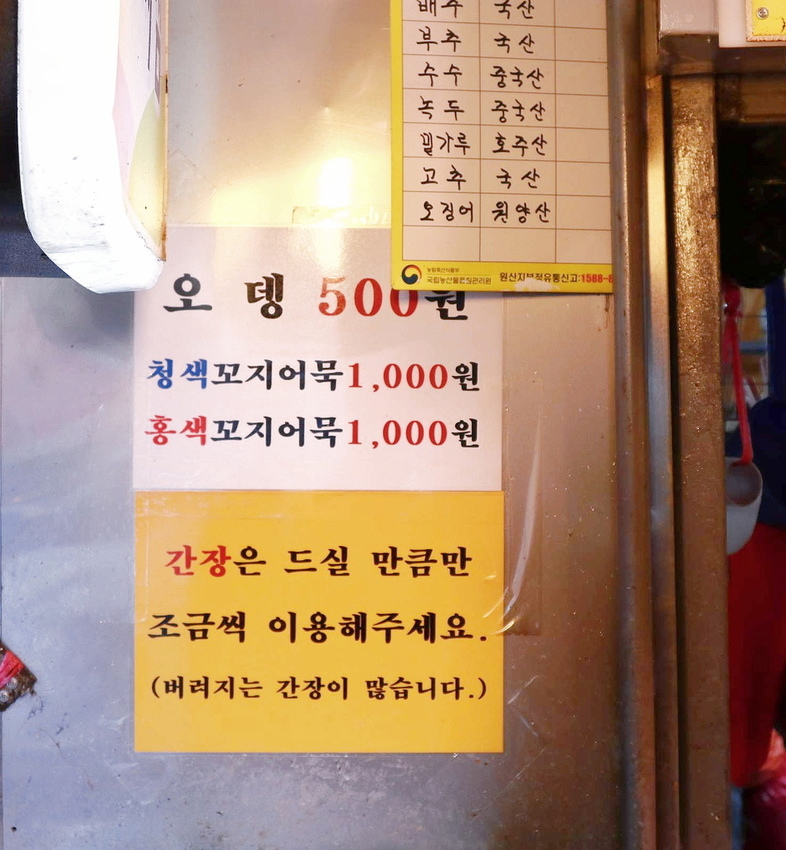 배추 국산
부추 국산
수수 중국산
녹두 중국산
밀가루 호주산
고추 국산
오징어 원양산
농림축산식품부
국립농산물품질관리원 원산지부정유통신고:1588-8
오뎅 500원
청색꼬지어묵1,000원
홍색꼬지어묵1,000원
간장은 드실 만큼만
조금씩 이용해주세요.
(버려지는 간장이 많습니다.)